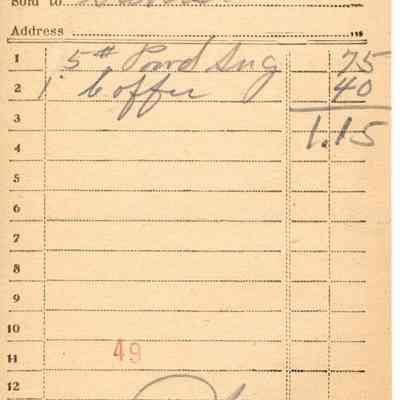 Sold to
Address
1 5# Powd Sug 75
2 1 Coffee 40
3
4 1.15
5
6
7
8
9
10
11 49
12